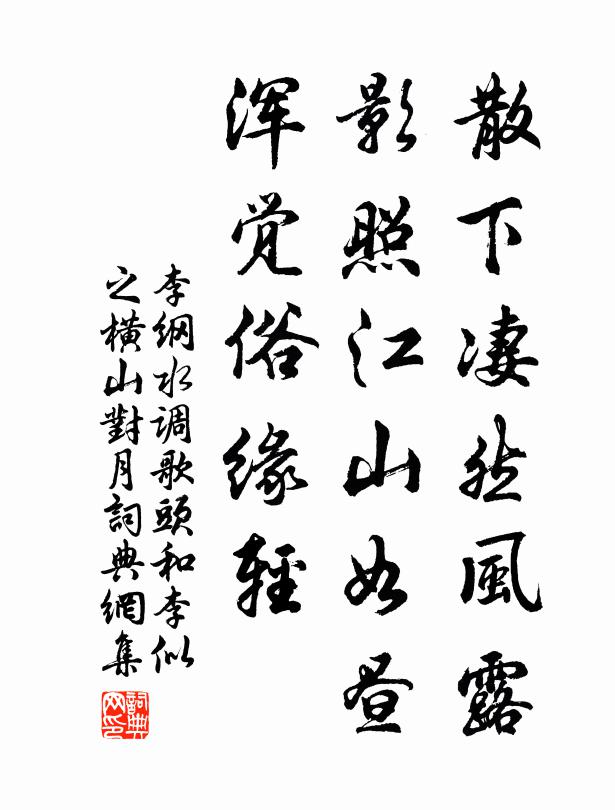 散下凄然風露
影照江山如昼
浑觉俗缘輕
李綱水调歌頭和李似
之横山對月詞典網集
詞典網印